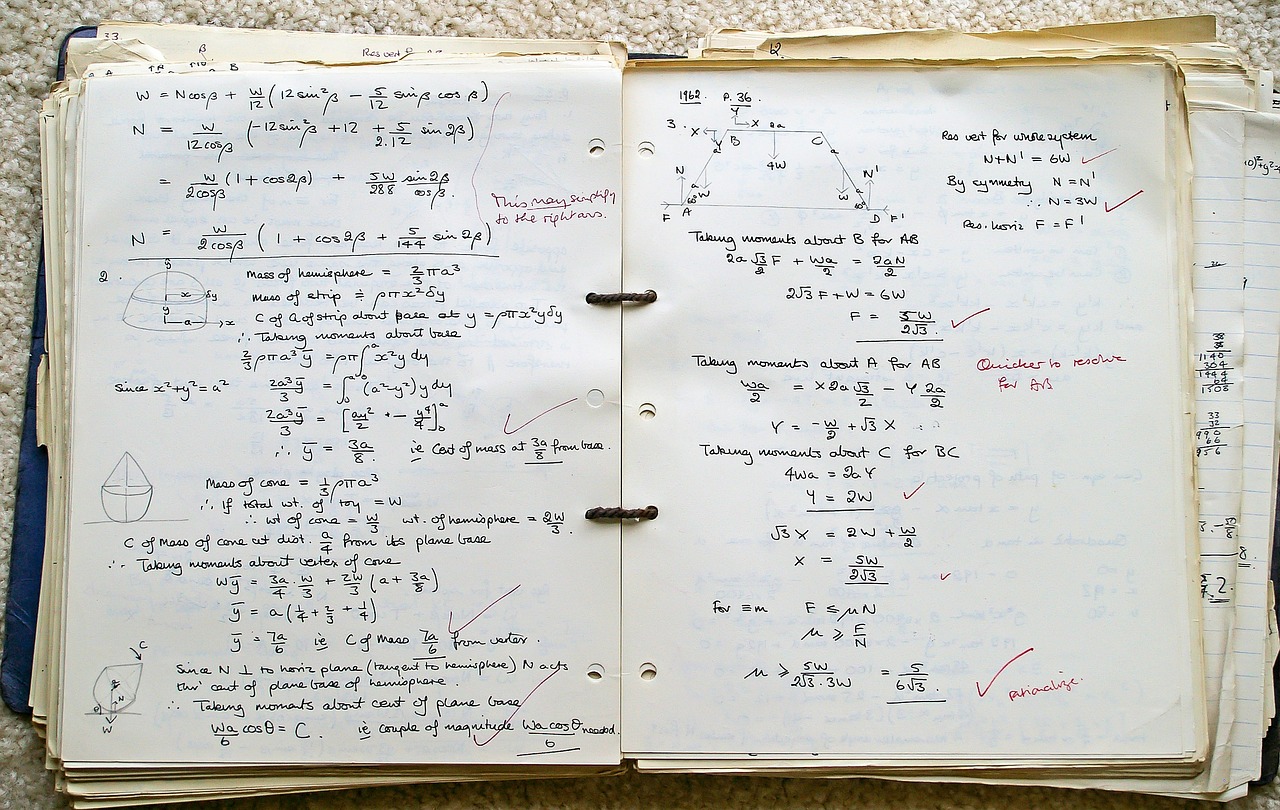 33.
β
Res vert
B
W = N cos β + W/12 (12 sin²β − 5/12 sin β cos β)
N = W/12cosβ (−12 sin²β + 12 + 5/2.12 sin 2β)
= W/2cosβ (1 + cos 2β) + 5W/288 sin 2β/cos β.
This may simplify
to the right ans.
N = W/2cosβ (1 + cos 2β + 5/144 sin 2β)
2.
y
x δy
y
a x
Mass of hemisphere = 2/3 πa³
Mass of strip ≑ ρπx²δy
C of G of strip about base at y = ρπx²yδy
∴ Taking moments about base
2/3 ρπa³ȳ = ρπ∫₀ᵃ x²y dy
Since x²+y²=a² 2a³ȳ/3 = ∫₀ᵃ (a²−y²) y dy
2a³ȳ/3 = [ay²/2 − y⁴/4]₀ᵃ
∴ ȳ = 3a/8 ie Cent of mass at 3a/8 from base.
Mass of cone = 1/3 ρπa³
∴ If total wt. of toy = W
∴ wt of cone = W/3 wt. of hemisphere = 2W/3.
C of Mass of cone at dist. a/4 from its plane base
∴ Taking moments about vertex of cone
Wȳ = 3a/4 · W/3 + 2W/3 (a + 3a/8)
ȳ = a(1/4 + 2/3 + 1/4)
ȳ = 7a/6 ie C of Mass 7a/6 from vertex.
C
N
θ
W
Since N ⊥ to horiz plane (tangent to hemisphere) N acts
thro' cent of plane base of hemisphere.
∴ Taking moments about cent of plane base
Wa/6 cos θ = C. ie couple of magnitude Wa cos θ/6 needed.
12.
1962. P. 36.
Y
3. X X 2a
Y B C
a 4W a
N N'
a W W a
60° 60°
F A D F'
Res vert for whole system
N+N' = 6W
By symmetry N = N'
∴ N = 3W
Res. horiz F = F'
Taking moments about B for AB
2a √3/2 F + Wa/2 = 2aN/2
2√3 F + W = 6W
F = 5W/2√3.
Taking moments about A for AB
Quicker to resolve
for AB
Wa/2 = X 2a √3/2 − Y 2a/2
Y = −W/2 + √3 X
Taking moments about C for BC
4Wa = 2aY
Y = 2W
√3 X = 2W + W/2
X = 5W/2√3
For ≡m F ≤ μN
μ ≥ F/N
μ ≥ 5W/2√3.3W = 5/6√3.
rationalize.
38
38
1140
304
1444
64
1508
33
32
990
66
956